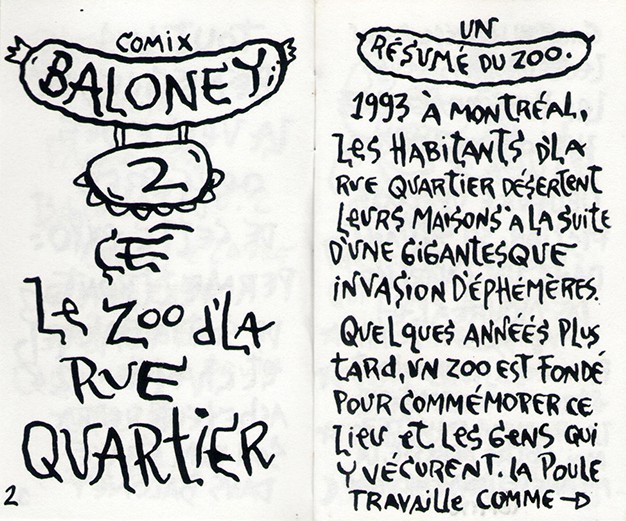 COMIX
BALONEY
2
ÇE
Le Zoo d'LA
RUE
QUARTIER
2
UN
RÉSUMÉ DU ZOO.
1993 À MONTRÉAL,
LES HABITANTS D'LA
RUE QUARTIER DÉSERTENT
LEURS MAISONS À LA SUITE
D'UNE GIGANTESQUE
INVASION D'ÉPHÉMÈRES.
QUELQUES ANNÉÉS PLUS
TARD, UN ZOO EST FONDÉ
POUR COMMÉMORER CE
LIEU ET LES GENS QUI
Y VÉCURENT. LA POULE
TRAVAILLE COMME →